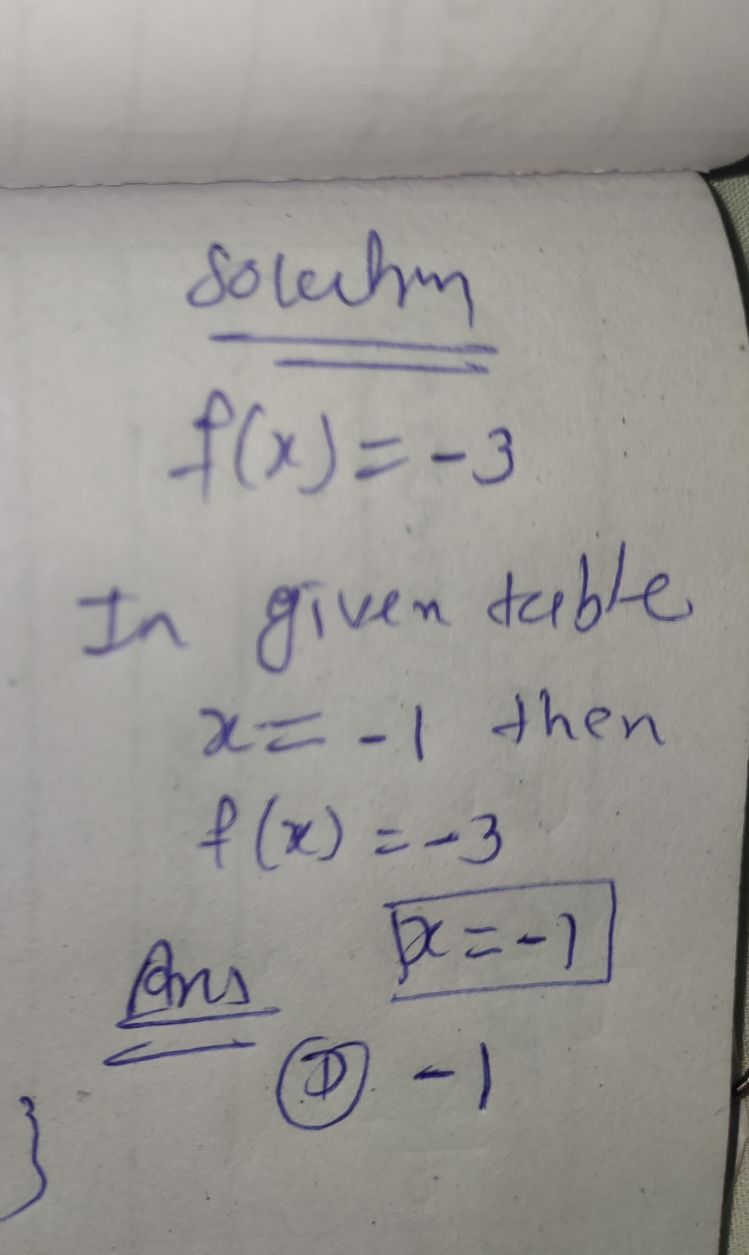 Solution
f(x) = -3
In given table
x = -1 then
f(x) = -3
x = -1
Ans
D -1
}